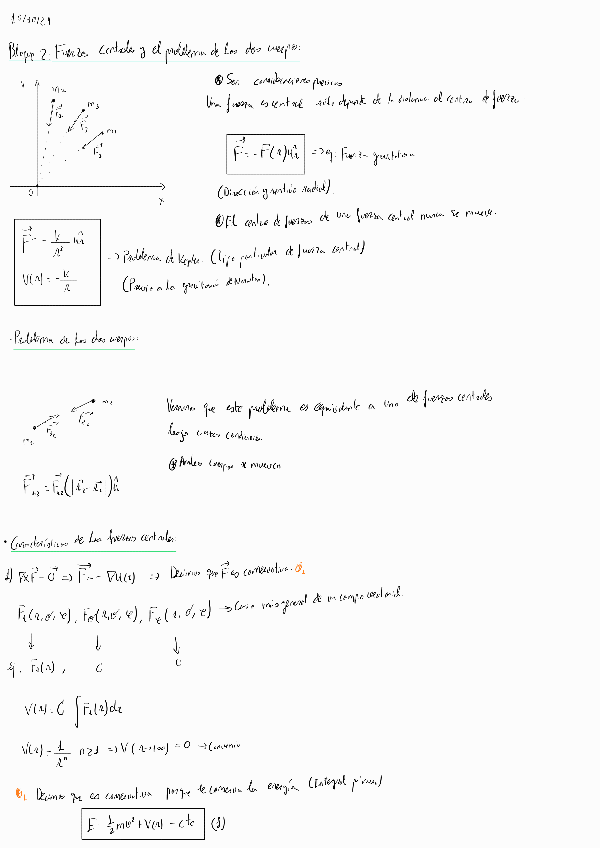 18/10/21
Bloque 2: Fuerzas centrales y el problema de los dos cuerpos:
y
m2
F2
m3
F3
m1
F1
0
x
consideraciones previas
Una fuerza es central sólo depende de la distancia al centro de fuerza
F = -F(r) ûr => eg. Fuerza gravitatoria
(Dirección y sentido radial).
El centro de fuerzas de una fuerza central nunca se mueve.
F = -k/r² ûr
V(r) = -k/r
-> Problema de Kepler. (Tipo particular de fuerza central)
(Previo a la gravitación de Newton).
· Problema de los dos cuerpos:
m2
F21
F12
m1
Veremos que este problema es equivalente a uno de fuerzas centrales
bajo ciertas condiciones
Ambos cuerpos se mueven
F12 = F12(|r2 - r1|) û
· Características de las fuerzas centrales:
1) ∇×F = 0 => F = -∇U(r) => Decimos que F es conservativa.
Fr(r, θ, φ), Fθ(r, θ, φ), Fφ(r, θ, φ) -> Caso más general de un campo vectorial.
↓ ↓ ↓
eg. Fr(r), 0 0
V(r) = ∫ Fr(r) dr
V(r) = 1/rⁿ n≥1 => V(r→+∞) = 0 -> Convenio
Decimos que es conservativa porque se conserva la energía (Integral primera)
E = 1/2 mv² + V(r) = cte (1)